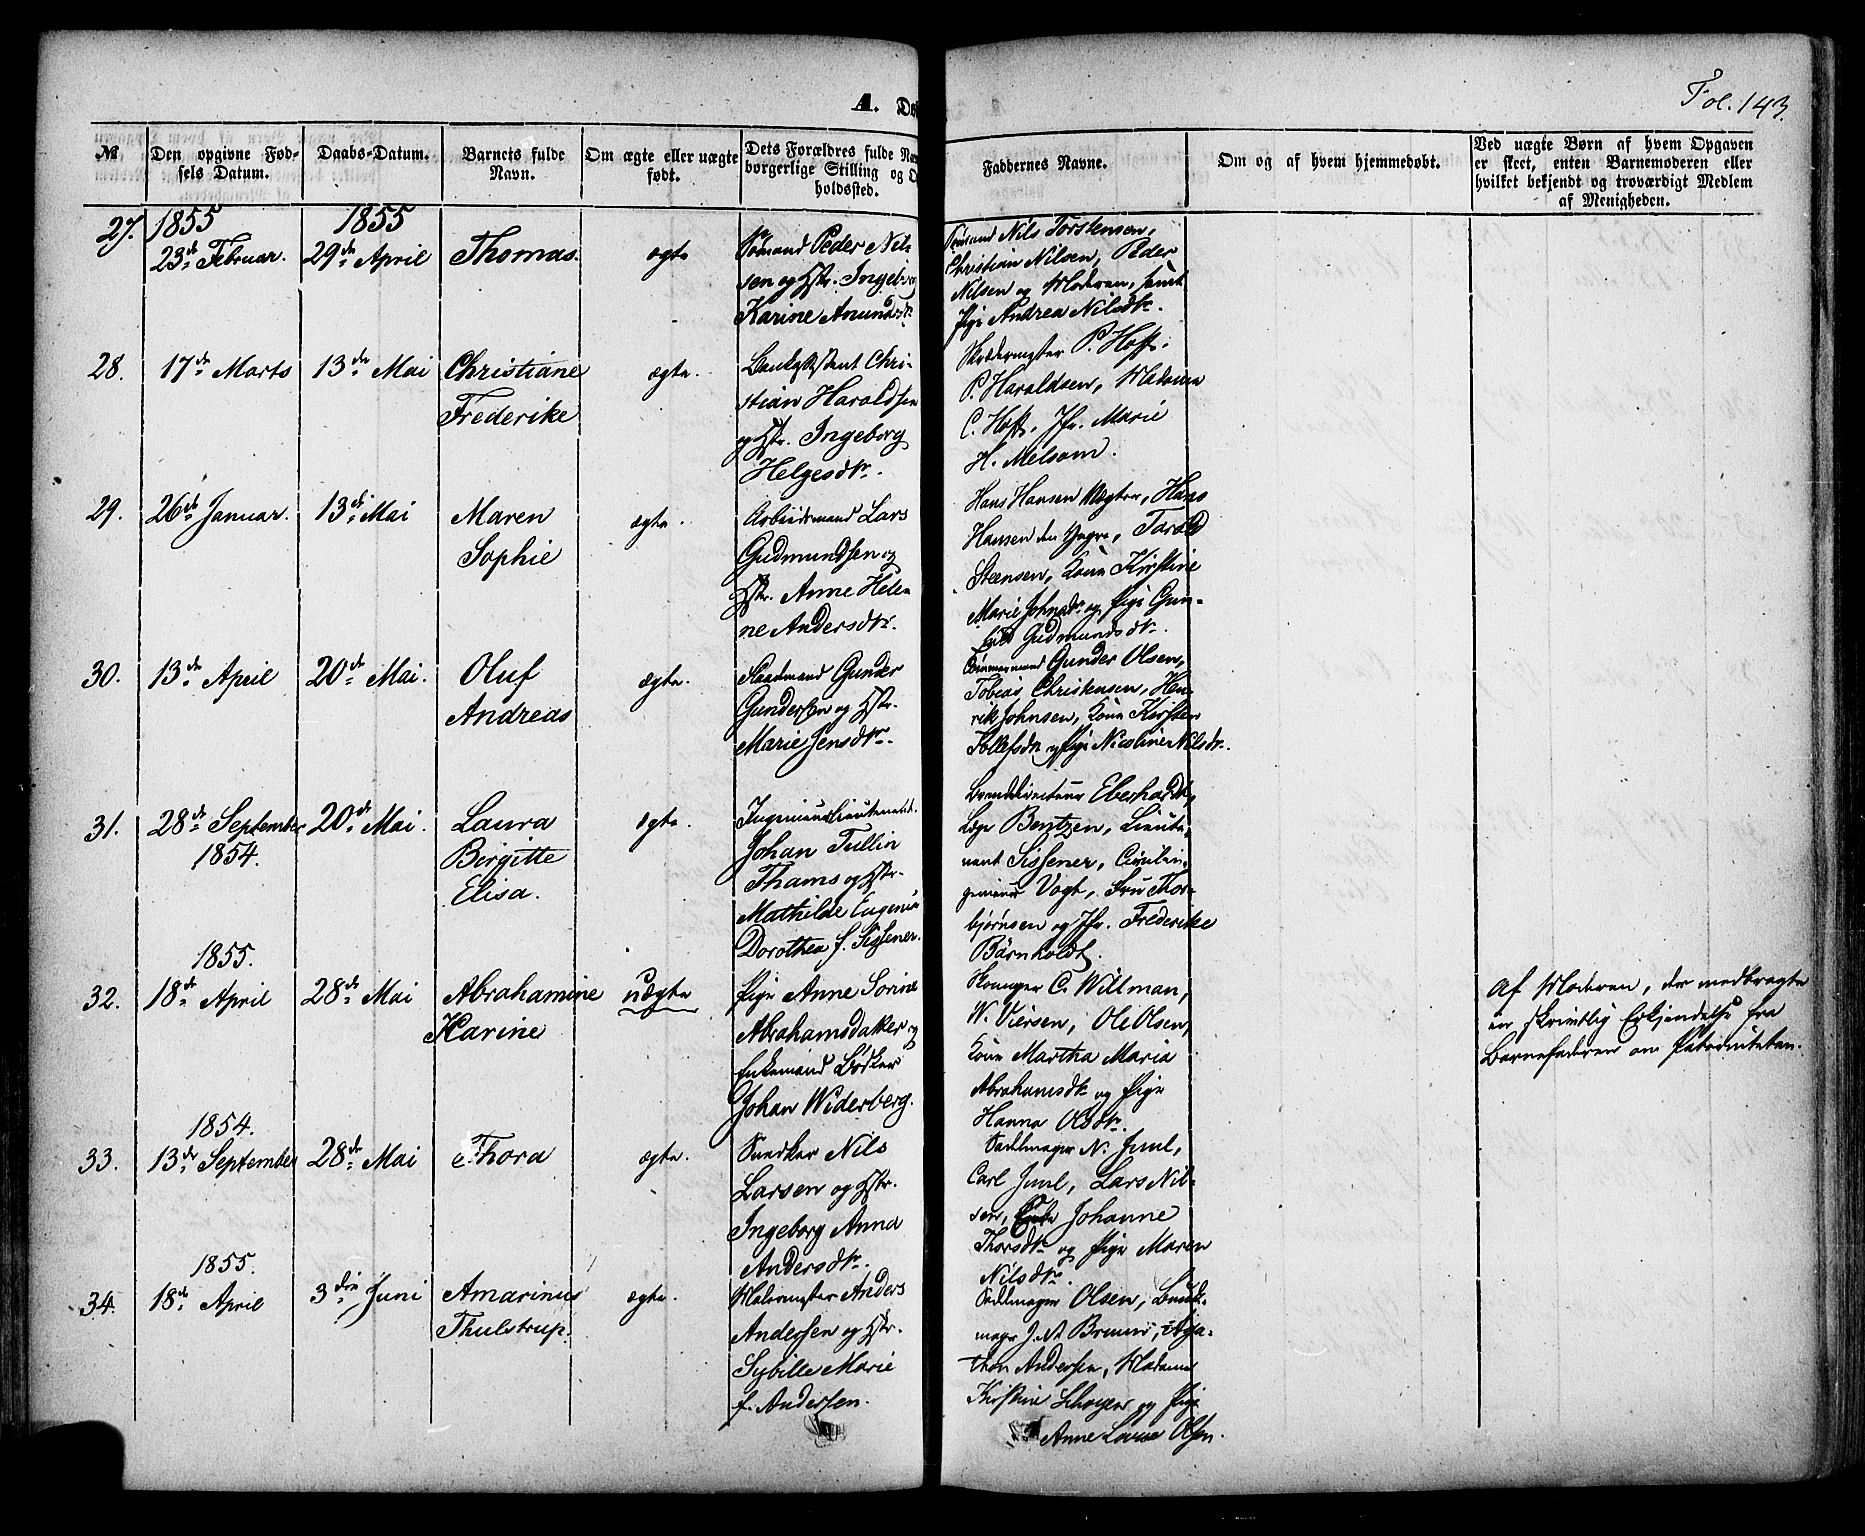 Fol. 143.
A. Dø
№
Den opgivne Fød-
sels Datum.
Daabs-Datum.
Barnets fulde
Navn.
Om ægte eller uægte
født.
Dets Forældres fulde Nav
borgerlige Stilling og O
holdssted.
Faddernes Navne.
Om og af hvem hjemmedøbt.
Ved uægte Børn af hvem Opgaven
er skeet, enten Barnemoderen eller
hvilket bekjendt og troværdigt Medlem
af Menigheden.
27.
1855
23de Februar.
1855
29de April
Thomas.
ægte
Sømand Peder Nil-
sen og Hstr. Ingeborg
Karine Amundsdtr.
Sømand Nils Torstensen,
Christian Nilsen, Peder
Nilsen og Moderen, samt
Pige Andrea Nilsdtr.
28.
17de Marts
13de Mai
Christiane
Frederike
ægte.
Chri-
stian Haraldsen
og Hstr. Ingeborg
Helgesdtr.
Skrædermester P. Hoff,
P. Haraldsen, Madame
C. Hoff, Jfr. Marie
H. Melsom.
29.
26de Januar.
13de Mai
Maren
Sophie
ægte.
Arbeidsmand Lars
Gudmundsen og
Hstr. Anne Hele-
ne Andersdtr.
Hans Hansen Vægter, Hans
Hansen den Yngre, Tarald
Steensen, Kone Kirstine
Marie Johnsdtr. og Pige Gun-
hild Gudmundsdtr.
30.
13de April
20de Mai.
Oluf
Andreas
ægte.
Gunder
Gundersen og Hstr.
Marie Jensdtr.
Gunder Olsen,
Tobias Christensen, Hen-
rik Johnsen, Kone Kirsten
Tollefsdtr. og Pige Nicoline Nilsdtr.
31.
28de September
1854.
20de Mai.
Laura
Birgitte
Elisa.
ægte.
Ingenieurlieutenant
Johan Tullin
Thams og Hstr.
Mathilde Eugenia
Dorothea f. Sissener.
Eberhardt,
Læge Bentzen, Lieute-
nant Sissener, Civilin-
genieur Vogt, Fru Thor-
bjørnsen og Jfr. Frederikke
Bärnholdt.
32.
1855.
18de April
28de Mai
Abrahamine
Karine
uægte
Pige Anne Sorine
Abrahamsdatter og
Enkemand Bødker
Johan Widerberg.
C. Willman,
W. Viersen, Ole Olsen,
Kone Martha Maria
Abrahamsdtr. og Pige
Hanna Olsdtr.
Af Moderen, der medbragte
en skriftlig Erkjendelse fra
Barnefaderen om Paterniteten.
33.
1854.
13de September
28de Mai
Thora
ægte.
Snedker Nils
Larsen og Hstr.
Ingeborg Anna
Andersdtr.
Sadlmager N. Juul,
Carl Juul, Lars Nil-
sen, Enke Johanne
Thorsdtr. og Pige Maren
Nilsdtr.
34.
1855.
18de April
3die Juni
Amarinus
Thulstrup.
ægte.
Malermester Anders
Andersen og Hstr.
Sybille Marie
f. Andersen.
Sadlmager Olsen, Buntmager
Bruun, Aga-
thon Andersen, Madame
Kirstine og Pige
Anne Lovise Olsen.